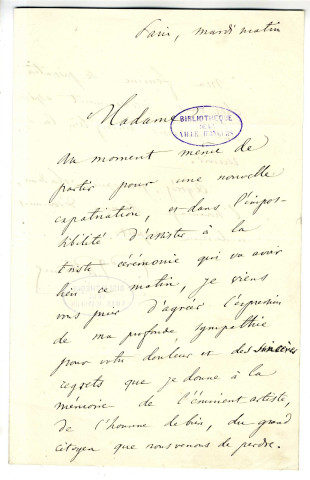 Paris, mardi matin
Madame
BIBLIOTHEQUE
DE LA
VILLE D'ANGERS
Au moment même de
partir pour une nouvelle
expatriation, et dans l'impos-
sibilité d'assister à la
triste cérémonie qui va avoir
lieu ce matin, je viens
vous prier d'agréer l'expression
de ma profonde sympathie
pour votre douleur et des sincères
regrets que je donne à la
mémoire de l'éminent artiste,
de l'homme de bien, du grand
citoyen que nous venons de perdre.